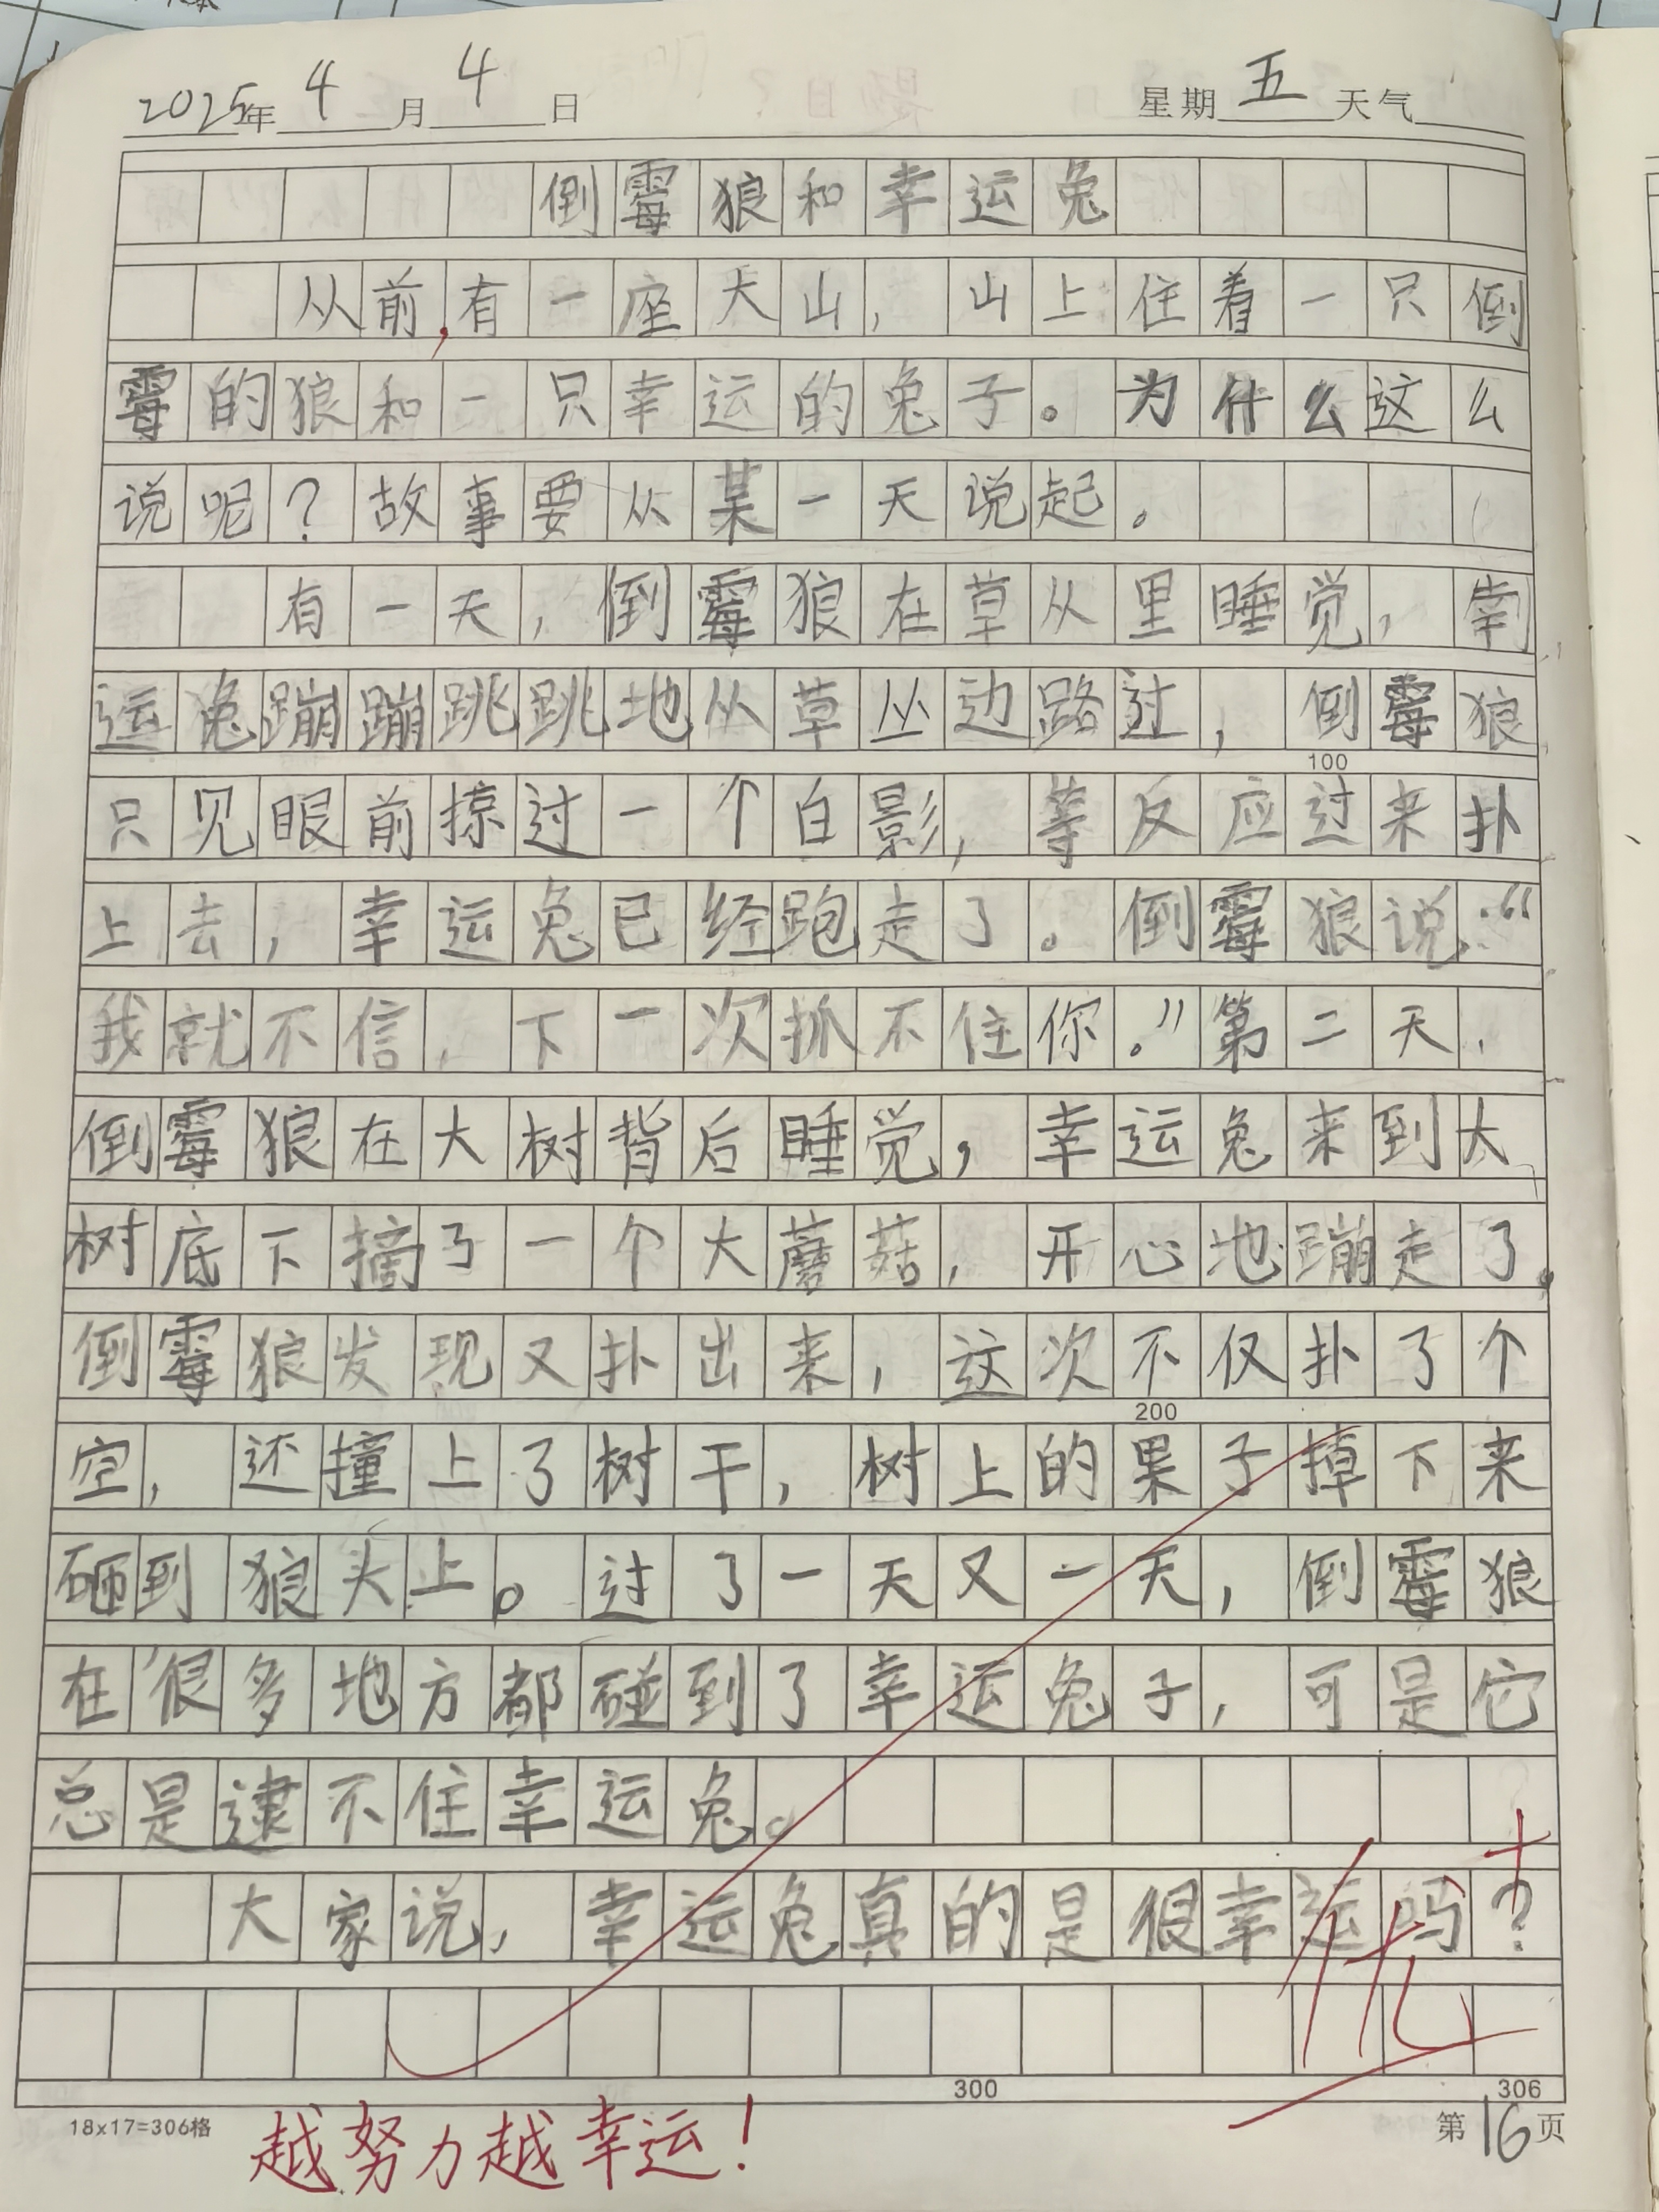 2025年4月4日 星期五天气
倒霉狼和幸运兔
从前,有一座大山，山上住着一只倒
霉的狼和一只幸运的兔子。为什么这么
说呢？故事要从某一天说起。
有一天，倒霉狼在草从里睡觉，幸
运兔蹦蹦跳跳地从草丛边路过，倒霉狼
只见眼前掠过一个白影，等反应过来扑
上去，幸运兔已经跑走了。倒霉狼说：“
我就不信，下一次抓不住你。”第二天，
倒霉狼在大树背后睡觉，幸运兔来到大
树底下摘了一个大蘑菇，开心地蹦走了。
倒霉狼发现又扑出来，这次不仅扑了个
空，还撞上了树干，树上的果子掉下来
砸到狼头上。过了一天又一天，倒霉狼
在很多地方都碰到了幸运兔子，可是它
总是逮不住幸运兔。
大家说，幸运兔真的是很幸运吗？
优+
100
200
300
306
18x17=306格
越努力越幸运！
第16页